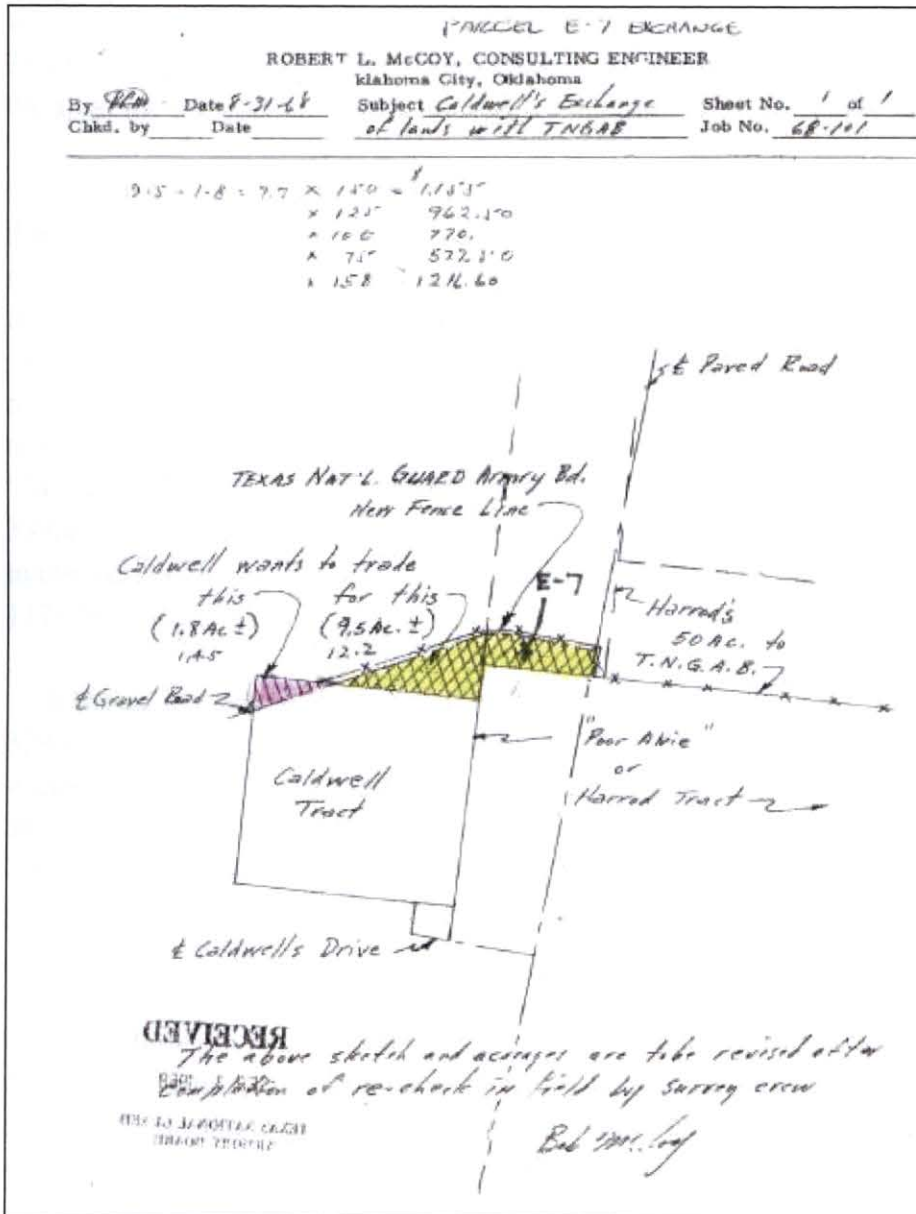 PARCEL E-7 EXCHANGE
ROBERT L. McCOY, CONSULTING ENGINEER
klahoma City, Oklahoma
By RLM Date 8-31-68 Subject Caldwell's Exchange Sheet No. 1 of 1
Chkd. by Date of lands with TNGAB Job No. 68-101
9.5 - 1.8 = 7.7 x 150 = $1,155
x 125 962.50
x 100 770.
x 75 577.50
x 158 1216.60
℄ Paved Road
TEXAS NAT'L. GUARD Armory Bd.
New Fence Line
Caldwell wants to trade
this for this
(1.8 Ac ±) (9.5 Ac. ±)
1.45 12.2
E-7
Harrod's
50 Ac. to
T.N.G.A.B.
℄ Gravel Road
"Poor Alvie"
or
Harrod Tract
Caldwell
Tract
℄ Caldwells Drive
RECEIVED
The above sketch and acreages are to be revised after
completion of re-check in field by survey crew
TEXAS NATIONAL GUARD
ARMORY BOARD
Bob McCoy